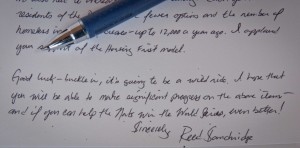 residents of the fewer options and the number of
homeless in creases - up to 12,000 a year ago. I applaud
your support of the Housing First model.
Good luck - buckle in, it's going to be a wild ride. I hope that
you will be able to make significant progress on the above items -
and if you can help the Nats win the World Series, even better!
Sincerely,
Reed